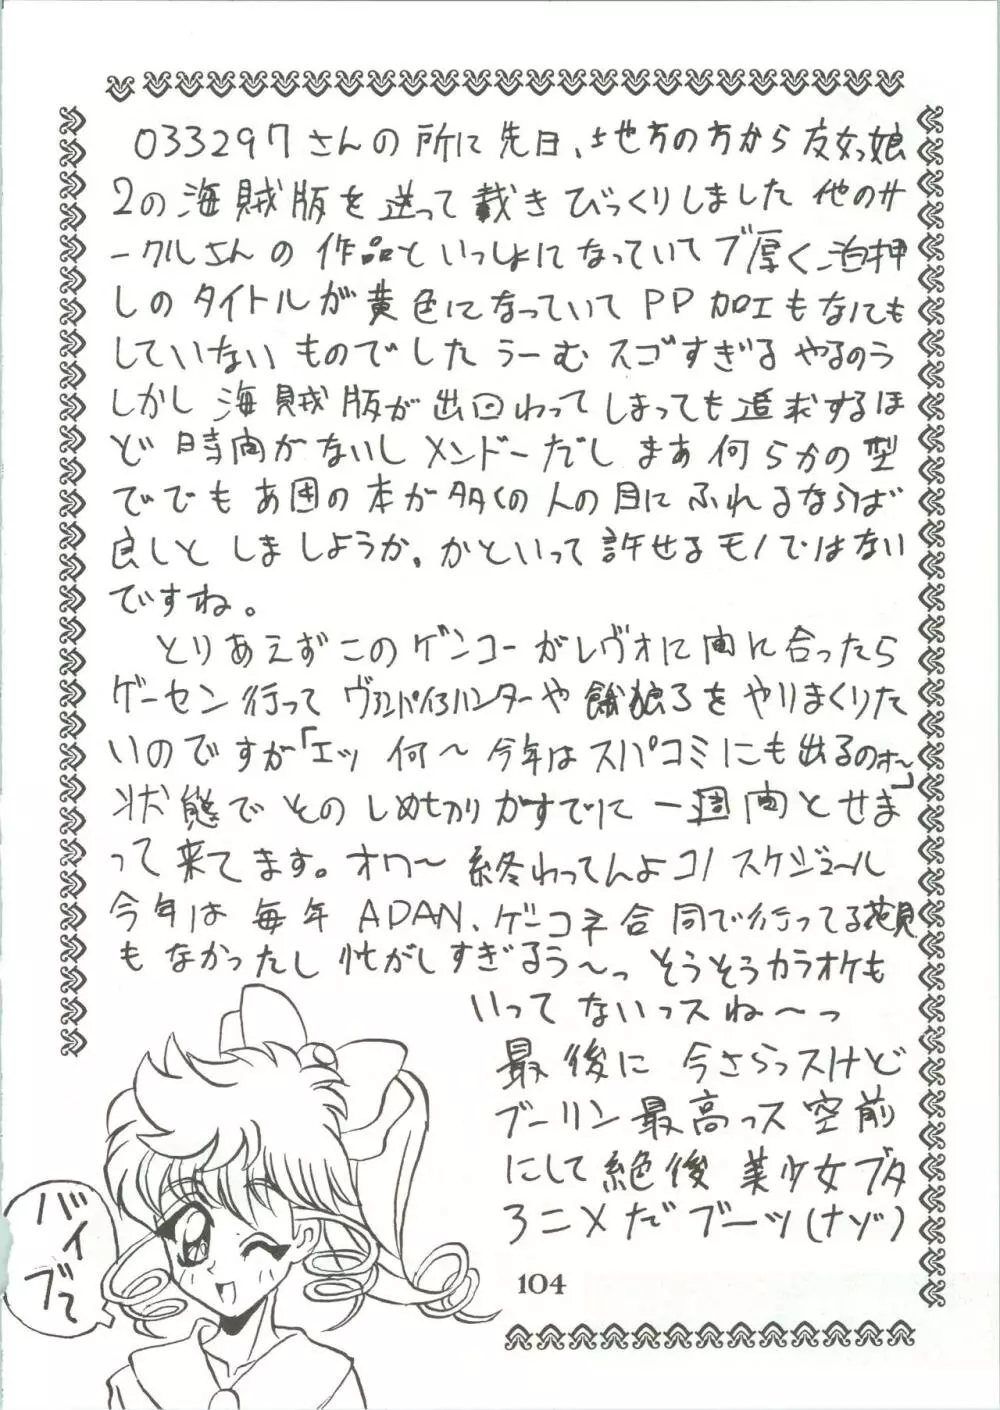 033297さんの所に先日、地方の方から友女っ娘
2の海賊版を送って戴きびっくりしました 他のサ
ークルさんの 作品といっしょになっていてブ厚く、泊押
しのタイトルが黄色になっていてPP加工もなにも
していない ものでした うーむ スゴすぎる やるのう
しかし 海賊版が出回わってしまっても追求するほ
ど 時間がないし メンドーだし まあ 何らかの型
ででも あ団の本が多くの人の目にふれるならば
良しと しましょうか。かといって 許せるモノではない
ですね。
とりあえずこのゲンコーがレヴォに間に合ったら
ゲーセン行って ヴァンパイアハンターや 餓狼3をやりまくりた
いのですが「エッ 何〜 今年はスパコミにも出るのォ〜」
状態で そのしめきりがすでに 一週間とせま
って来てます。オワ〜 終わってんよコノ スケジュール
今年は 毎年 ADAN、ゲーコネ合同で行ってる花見
もなかったし 忙がしすぎるう〜っ そうそうカラオケも
いってないっスね〜っ
最後に 今さらっスけど
ブーリン最高っス 空前
にして絶後 美少女ブタ
アニメだブーッ(ナゾ)
バイブて
104